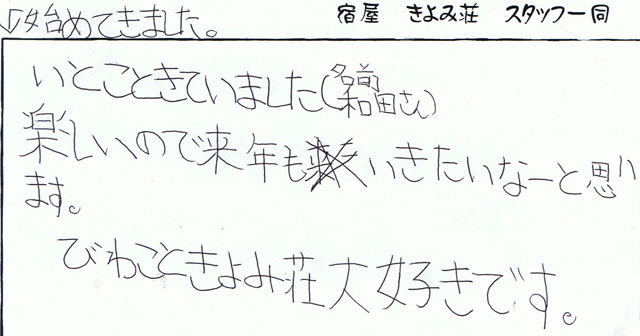 始めてきました。
宿屋 きよみ荘 スタッフ一同
いとこときていました(名前 和田さん)
楽しいので来年もいきたいなーと思い
ます。
びわことときよみ荘大好きです。